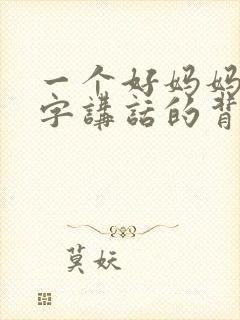 一个好妈妈
字講話的背
莫妖